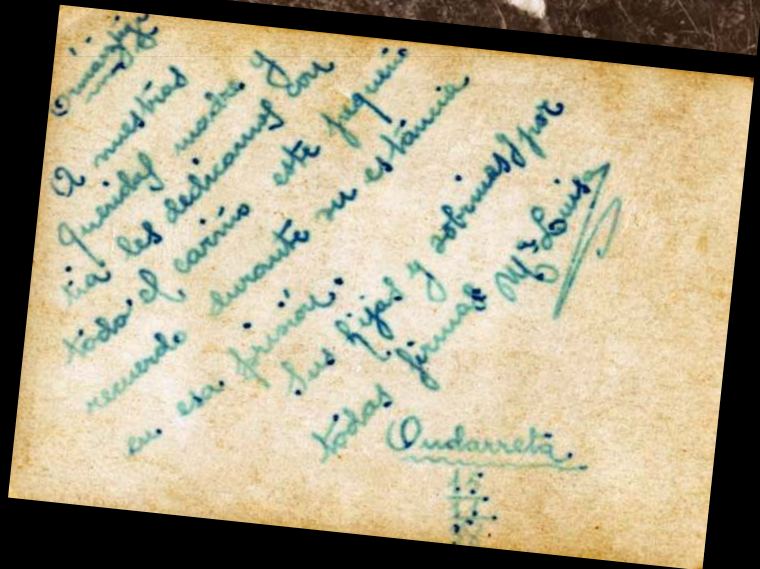 A nuestras
queridas madre y
tia les dedicamos con
todo el cariño este pequeño
recuerdo durante su estáncia
en esa prisión.
Sus hijas y sobrinas y por
todas firma Mª Luisa
Ondarreta